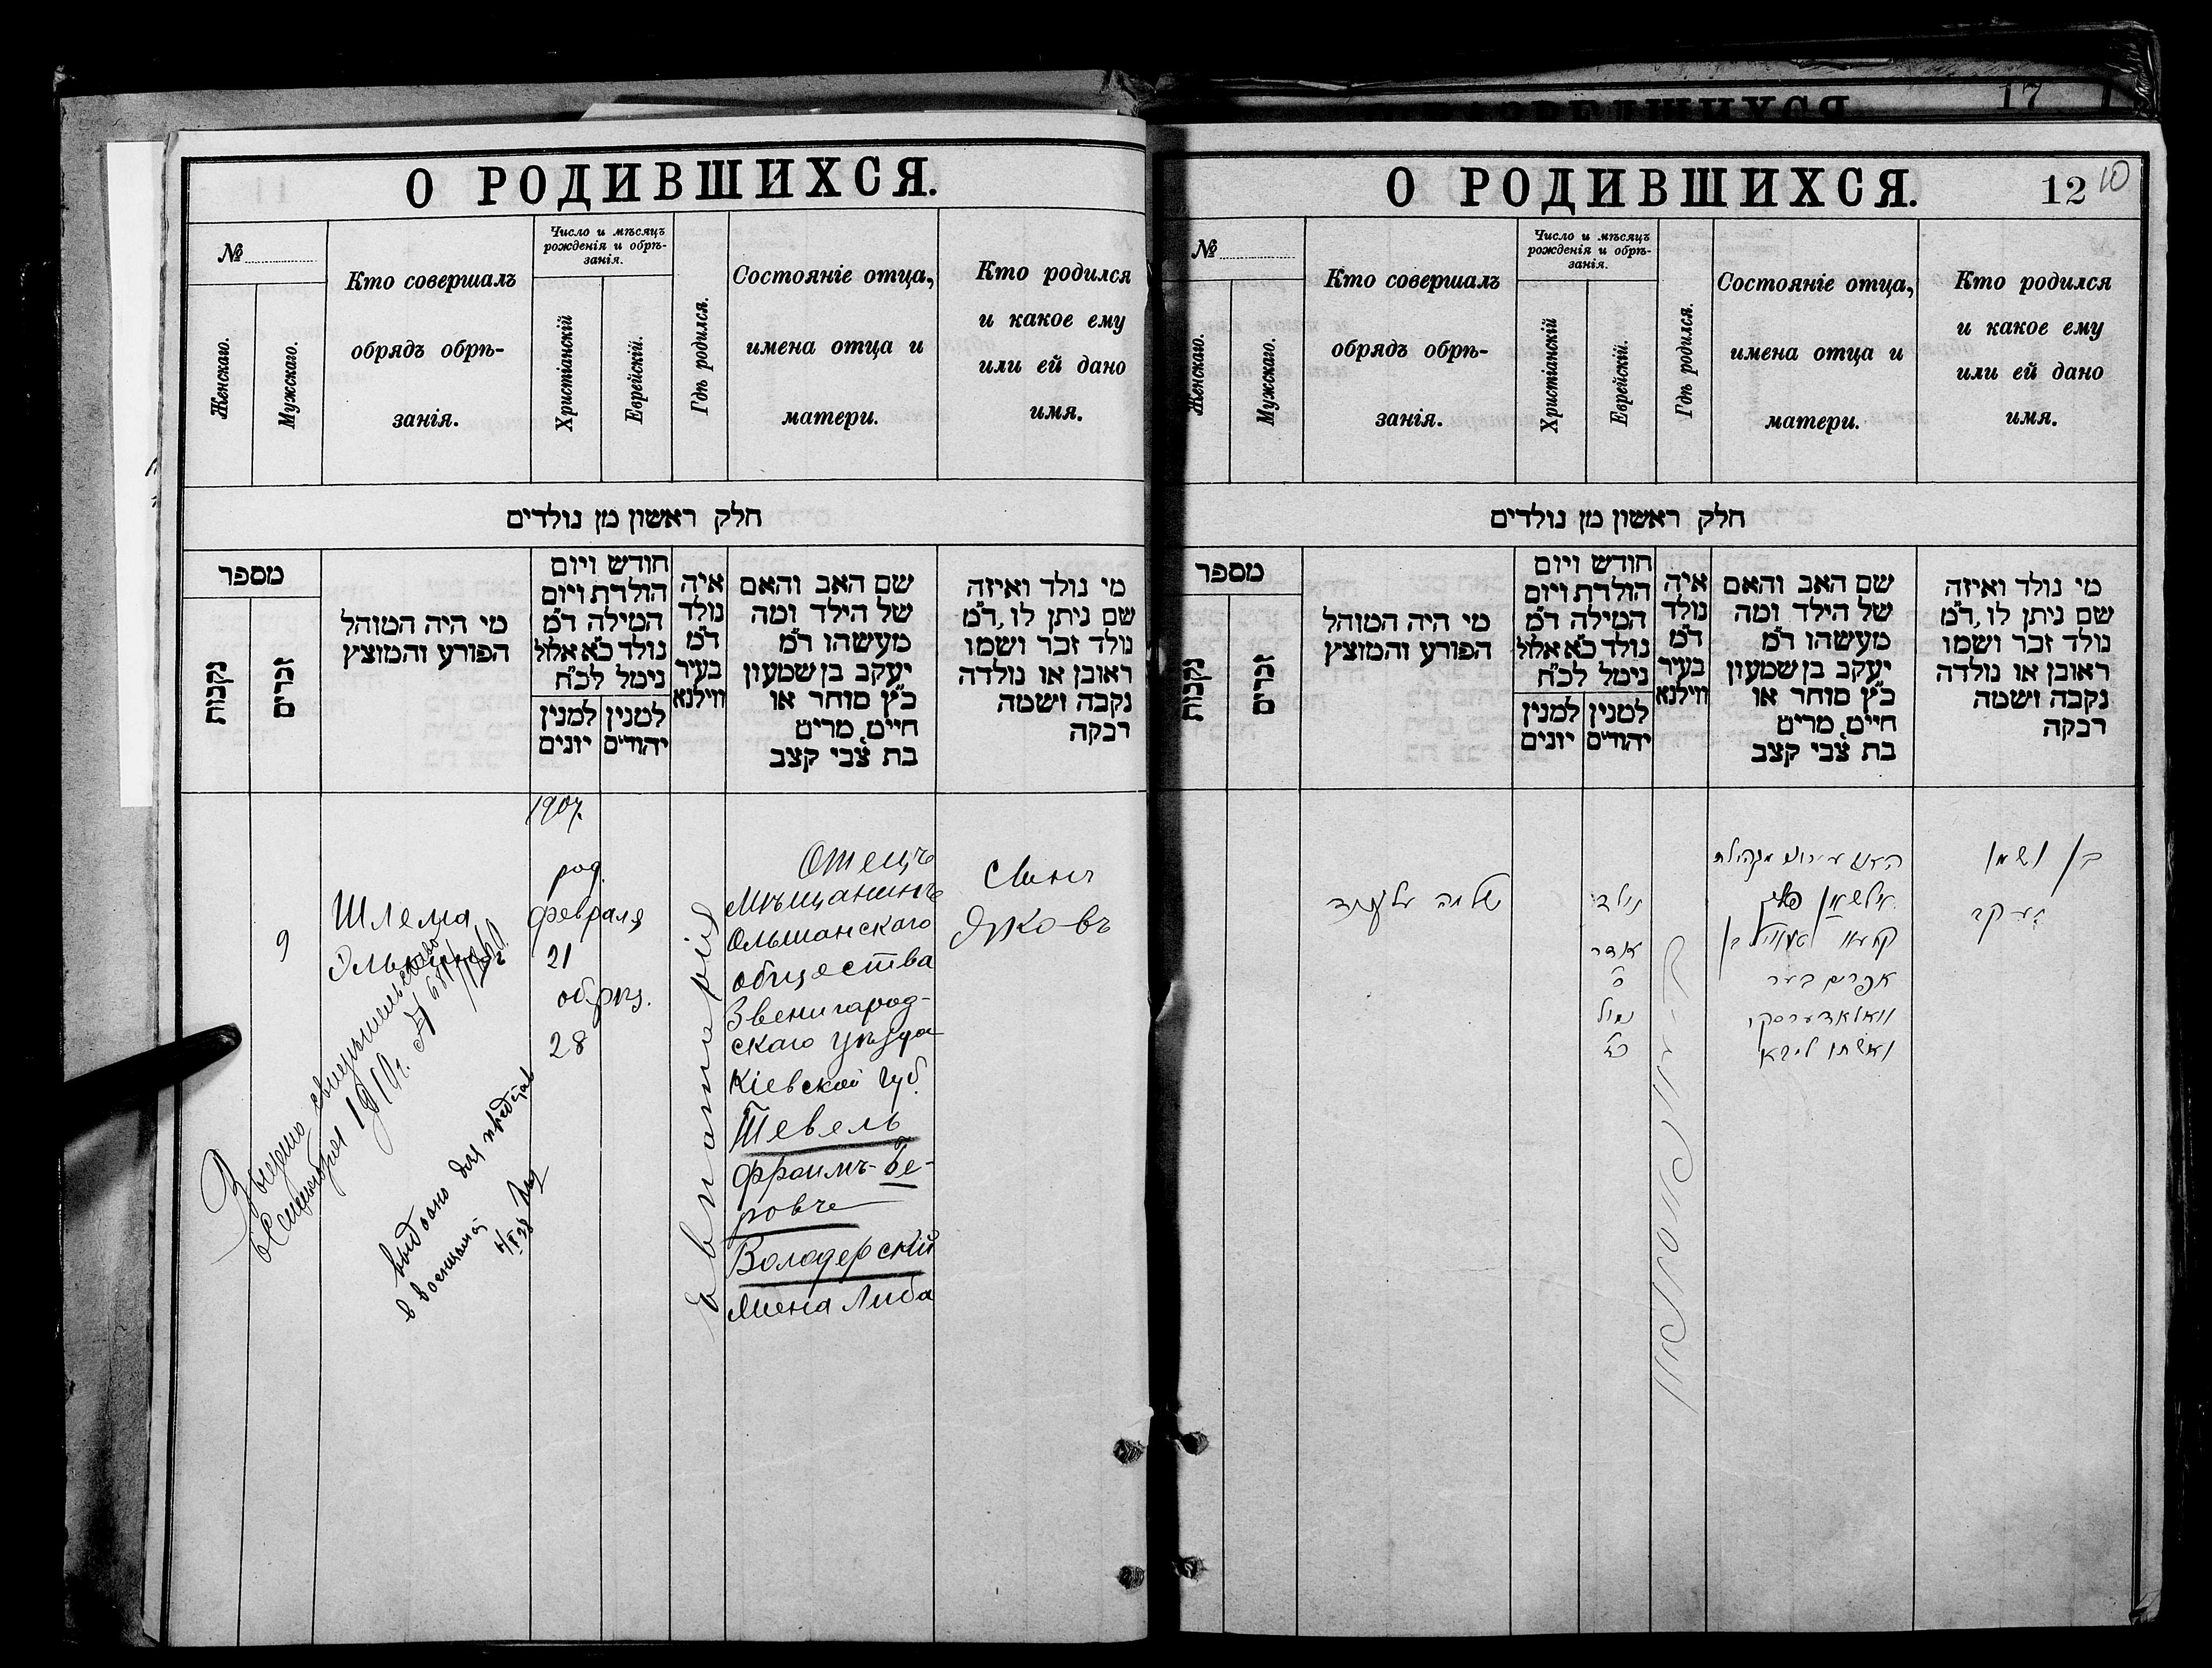 17
О РОДИВШИХСЯ.
№
Женскаго.
Мужскаго.
Кто совершалъ
обрядъ обрѣ-
занія.
Число и мѣсяцъ
рожденія и обрѣ-
занія.
Христіанскій
Еврейскій.
Гдѣ родился.
Состояніе отца,
имена отца и
матери.
Кто родился
и какое ему
или ей дано
имя.
חלק ראשון מן נולדים
מספר
נקבות
זכרים
מי היה המוהל
הפורע והמוצץ
חודש ויום
הולדת ויום
המילה ד״מ
נולד כ״א אלול
נימל לכ״ח
למנין
יונים
למנין
יהודים
איה
נולד
ד״מ
בעיר
ווילנא
שם האב והאם
של הילד ומה
מעשהו ד״מ
יעקב בן שמעון
כ״ץ סוחר או
חייט, מרים
בת צבי קצב
מי נולד ואיזה
שם ניתן לו, ד״מ
נולד זכר ושמו
ראובן או נולדה
נקבה ושמה
רבקה
9
Шлема
1907.
род.
февраля
21
обрѣз.
28
Евпаторія
Отецъ
Мѣщанинъ
Ольшанскаго
общества
Звенигород-
скаго уѣзда
Кіевской губ.
Тевель
Фроимъ-Бе-
ровъ
Володерскій
Жена Либа
Сынъ
Яковъ
1910 г.
выдано для
О РОДИВШИХСЯ.
12 10
№
Женскаго.
Мужскаго.
Кто совершалъ
обрядъ обрѣ-
занія.
Число и мѣсяцъ
рожденія и обрѣ-
занія.
Христіанскій
Еврейскій.
Гдѣ родился.
Состояніе отца,
имена отца и
матери.
Кто родился
и какое ему
или ей дано
имя.
חלק ראשון מן נולדים
מספר
נקבות
זכרים
מי היה המוהל
הפורע והמוצץ
חודש ויום
הולדת ויום
המילה ד״מ
נולד כ״א אלול
נימל לכ״ח
למנין
יונים
למנין
יהודים
איה
נולד
ד״מ
בעיר
ווילנא
שם האב והאם
של הילד ומה
מעשהו ד״מ
יעקב בן שמעון
כ״ץ סוחר או
חייט, מרים
בת צבי קצב
מי נולד ואיזה
שם ניתן לו, ד״מ
נולד זכר ושמו
ראובן או נולדה
נקבה ושמה
רבקה
שלמה
נולד
אדר
נמול
אפרים בער
וואלאדערסקי
ואשתו ליבא
בן ושמו
יעקב